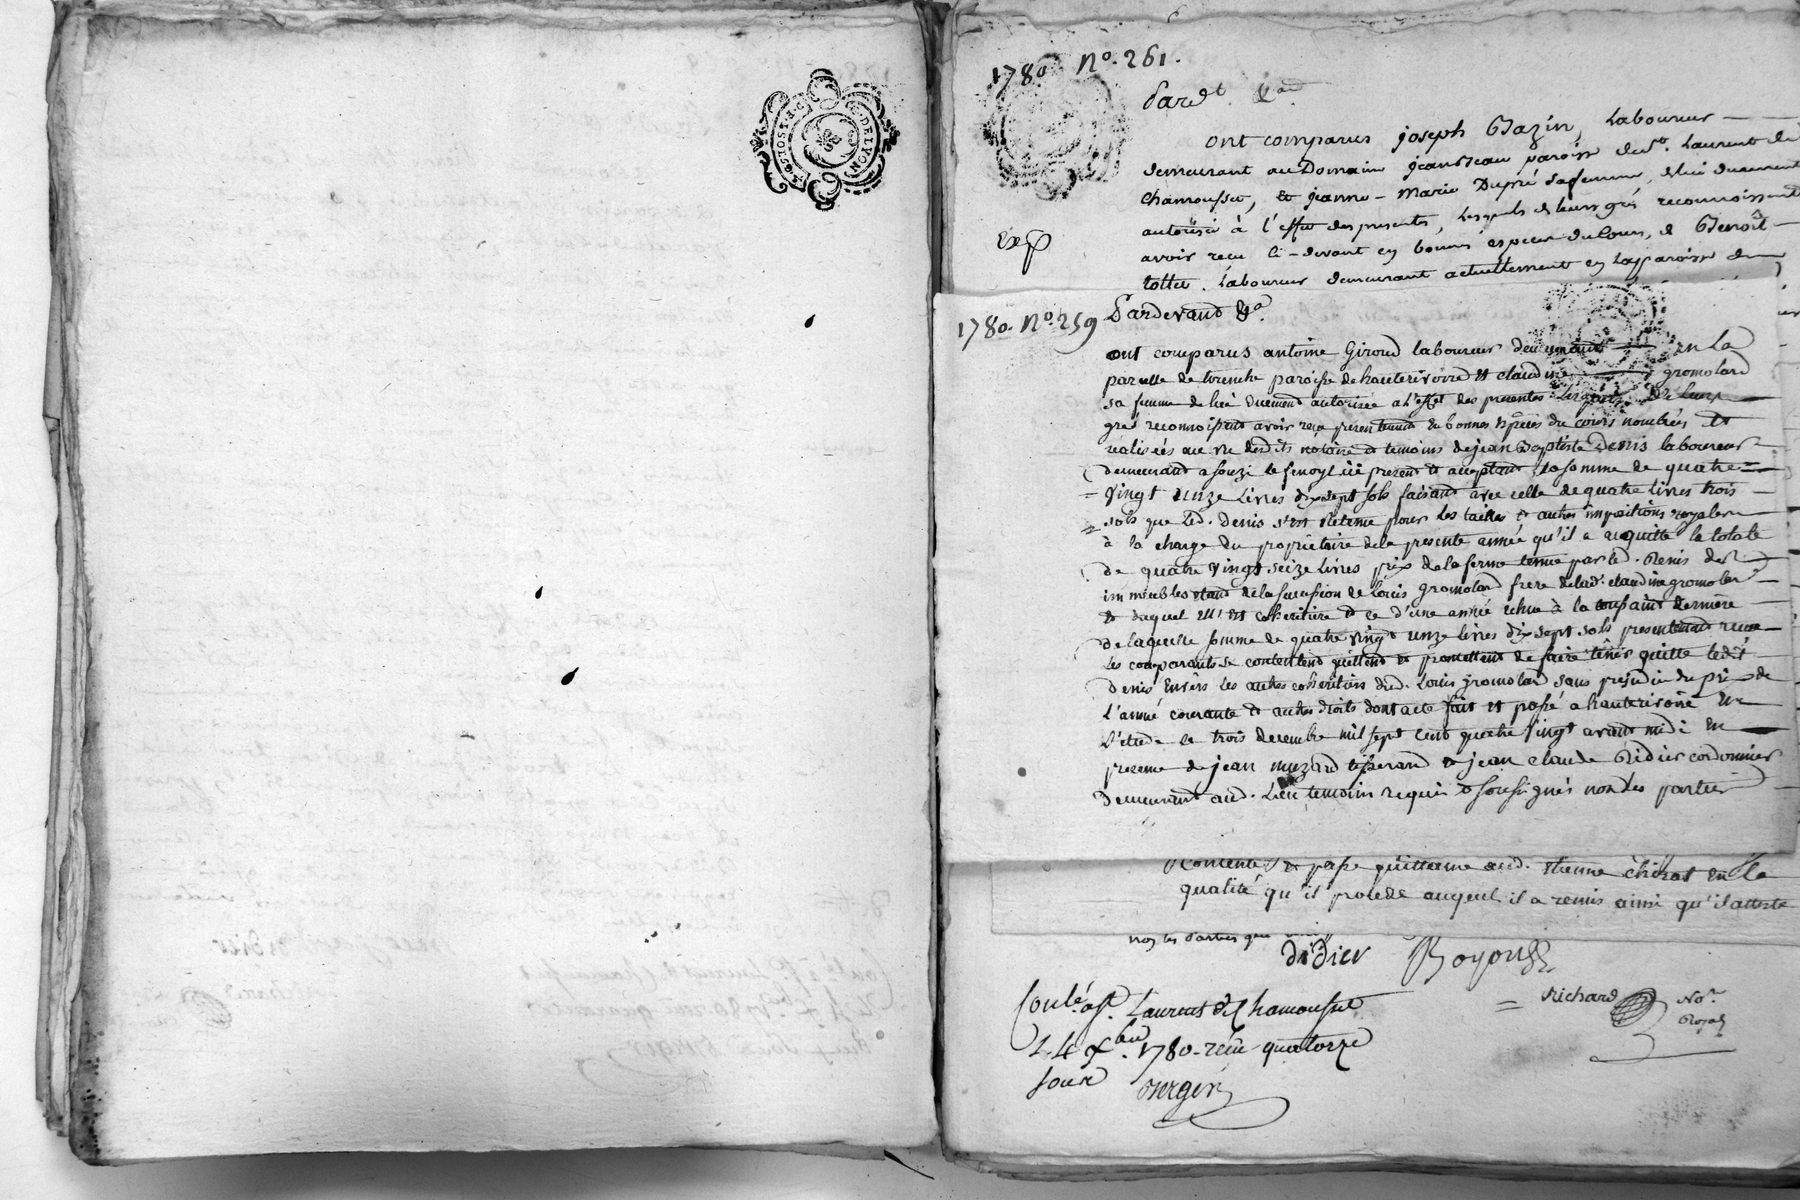 G. DE LYON
1780 No. 261.
Pardt. &a
ont comparus joseph Bazin, Laboureur
demeurant au Domaine jeandeau paroisse de st. Laurent de
Chamousset, et jeanne-Marie Dupré sa femme, de lui duement
autorisée à l'effet des presentes, Lesquels de leurs grés reconnoissent
Exp
avoir reçu ci-devant en bonnes especes du Cours, de Benoît
Laboureur demeurant actuellement en La paroisse de
1780. No. 259 Pardevand &a.
ont comparus antoine Giroud laboureur demeurant en La
parcelle de paroisse de hauterivoire et claudine gromolard
sa femme de lui duement autorisée a l'effet des presentes Lesquels de Leurs
gres reconnoissent avoir reçu presentement en bonnes Especes du cours nombrées et
réalisées au vu desdits notaire et temoins de jean Baptiste Denis laboureur
demeurant a souzi ici present et acceptant la somme de quatre
vingt unze Livres dix sept sols faisant avec celle de quatre livres trois
sols que Led. Denis s'est Retenue pour Les tailles et autres impositions royales
à la charge du proprietaire de la presente année qu'il a acquitté la totale
de quatre vingt seize Livres prix de la ferme tenue par led. Denis des
immeubles etant de la succession de Louis gromolard frere de lad. claudine gromolard
et duquel elle est coheritiere et ce d'une année echue à la toussaint derniere
de laquelle somme de quatre vingt unze livres dix sept sols presentement reçue
Les comparants se contentent quittent et promettent de faire tenir quitte ledit
Denis Envers Les autres coheritiers dud. Louis gromolard sans prejudice du prix de
L'année courante et autres droits dont acte fait et passé a hauterivoire En
L'etude le trois decembre mil sept cent quatre vingt avant midi En
presence de jean muzard tisserand et jean claude Didier cordonnier
Demeurant aud. Lieu temoins requis et soussignés non les parties
contente et passe quittance aud. etienne chirat En la
qualité qu'il procede auquel il a remis ainsi qu'il atteste
non les parties que
didier
Richard Nore. Royal
Conlé. a st. Laurent de Chamousset
Le 4 Xbre. 1780. reçu quatorze
sous